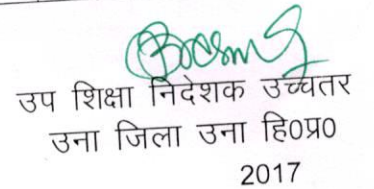 उप शिक्षा निदेशक उच्चतर
उना जिला उना हि0प्र0
2017